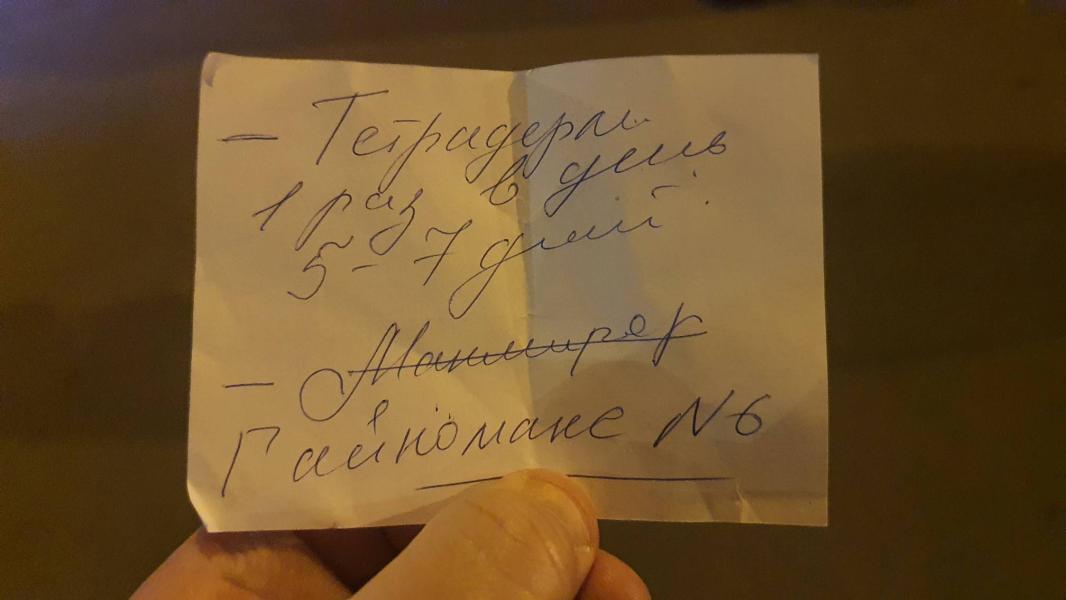 — Тетрадерм
1 раз в день
5-7 дней.
—
Гайномакс N6